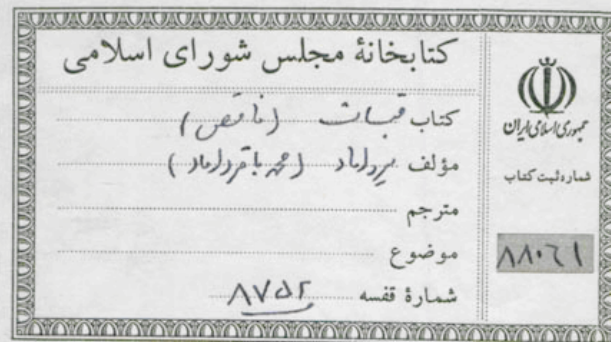 کتابخانهٔ مجلس شورای اسلامی
کتاب قبسات (ناقص)
مؤلف میرداماد (محمد باقر داماد)
مترجم
موضوع
شمارهٔ قفسه ۸۷۵۲
جمهوری اسلامی ایران
شماره ثبت کتاب
۸۸۰۶۱